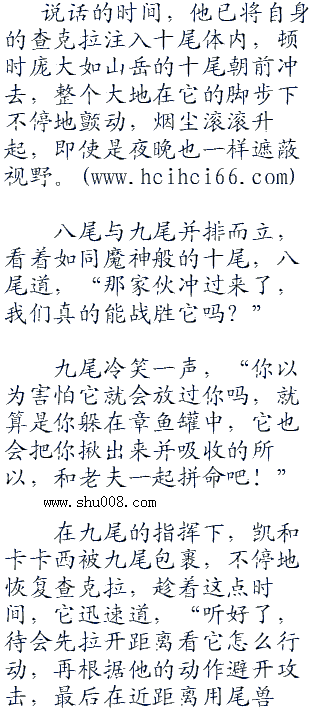 说话的时间，他已将自身
的查克拉注入十尾体内，顿
时庞大如山岳的十尾朝前冲
去，整个大地在它的脚步下
不停地颤动，烟尘滚滚升
起，即使是夜晚也一样遮蔽
视野。(www.hcihci66.com)
八尾与九尾并排而立，
看着如同魔神般的十尾，八
尾道，“那家伙冲过来了，
我们真的能战胜它吗？”
九尾冷笑一声，“你以
为害怕它就会放过你吗，就
算是你躲在章鱼罐中，它也
会把你揪出来并吸收的所
以，和老夫一起拼命吧！”
www.shu008.com
在九尾的指挥下，凯和
卡卡西被九尾包裹，不停地
恢复查克拉，趁着这点时
间，它迅速道，“听好了，
待会先拉开距离看它怎么行
动，再根据他的动作避开攻
击，最后在近距离用尾兽